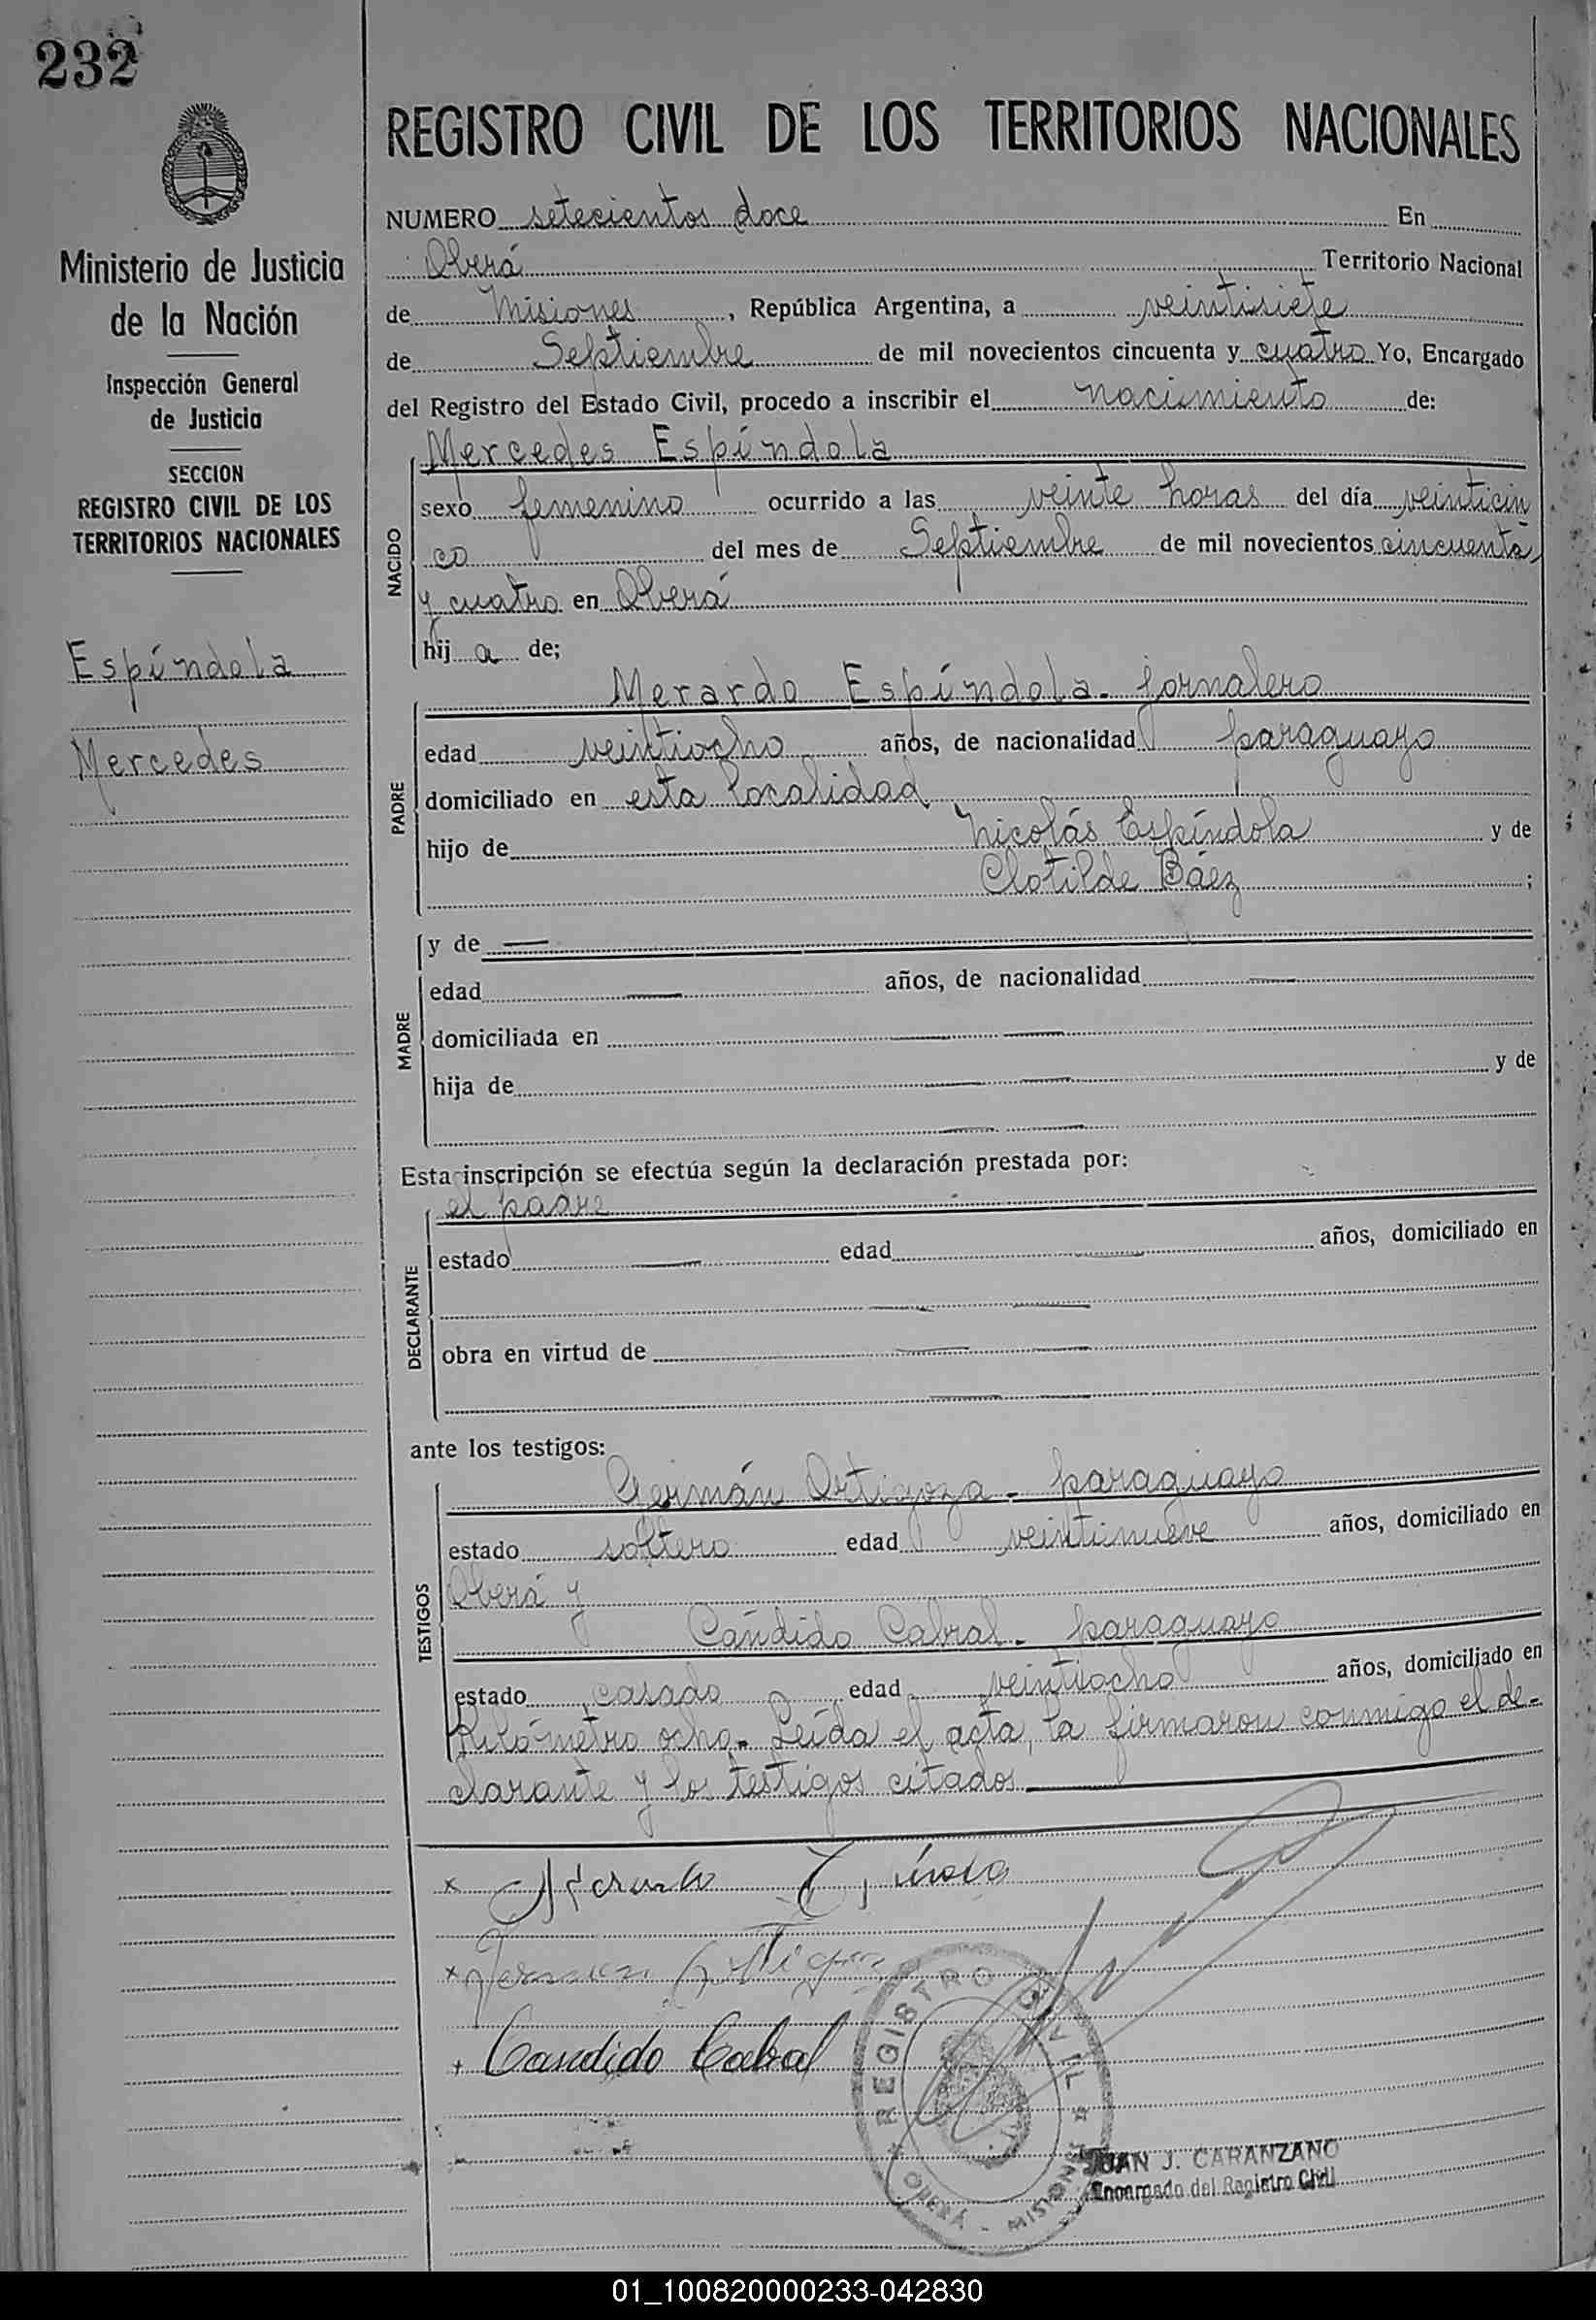 232
Ministerio de Justicia
de la Nación
Inspección General
de Justicia
SECCION
REGISTRO CIVIL DE LOS
TERRITORIOS NACIONALES
Espíndola
Mercedes
REGISTRO CIVIL DE LOS TERRITORIOS NACIONALES
NUMERO setecientos doce En
Oberá Territorio Nacional
de Misiones, República Argentina, a veintisiete
de Septiembre de mil novecientos cincuenta y cuatro Yo, Encargado
del Registro del Estado Civil, procedo a inscribir el nacimiento de:
NACIDO
Mercedes Espíndola
sexo femenino ocurrido a las veinte horas del día veinticin
co del mes de Septiembre de mil novecientos cincuenta
y cuatro en Oberá
hij a de;
PADRE
Merardo Espíndola. jornalero
edad veintiocho años, de nacionalidad paraguayo
domiciliado en esta localidad
hijo de Nicolás Espíndola y de
Clotilde Báez ;
MADRE
y de —
edad — años, de nacionalidad —
domiciliada en — —
hija de — — y de
— —
Esta inscripción se efectúa según la declaración prestada por:
DECLARANTE
el padre
estado — edad — años, domiciliado en
— —
obra en virtud de — —
— —
ante los testigos:
TESTIGOS
Germán Ortigoza - paraguayo
estado soltero edad veintinueve años, domiciliado en
Oberá y
Cándido Cabral. paraguayo
estado casado edad veintiocho años, domiciliado en
Kilómetro ocho. Leída el acta, la firmaron conmigo el de-
clarante y los testigos citados
x
x
+ Candido Cabral
REGISTRO CIVIL
OBERÁ - MISIONES
JUAN J. CARANZANO
Encargado del Registro Civil
01_100820000233-042830